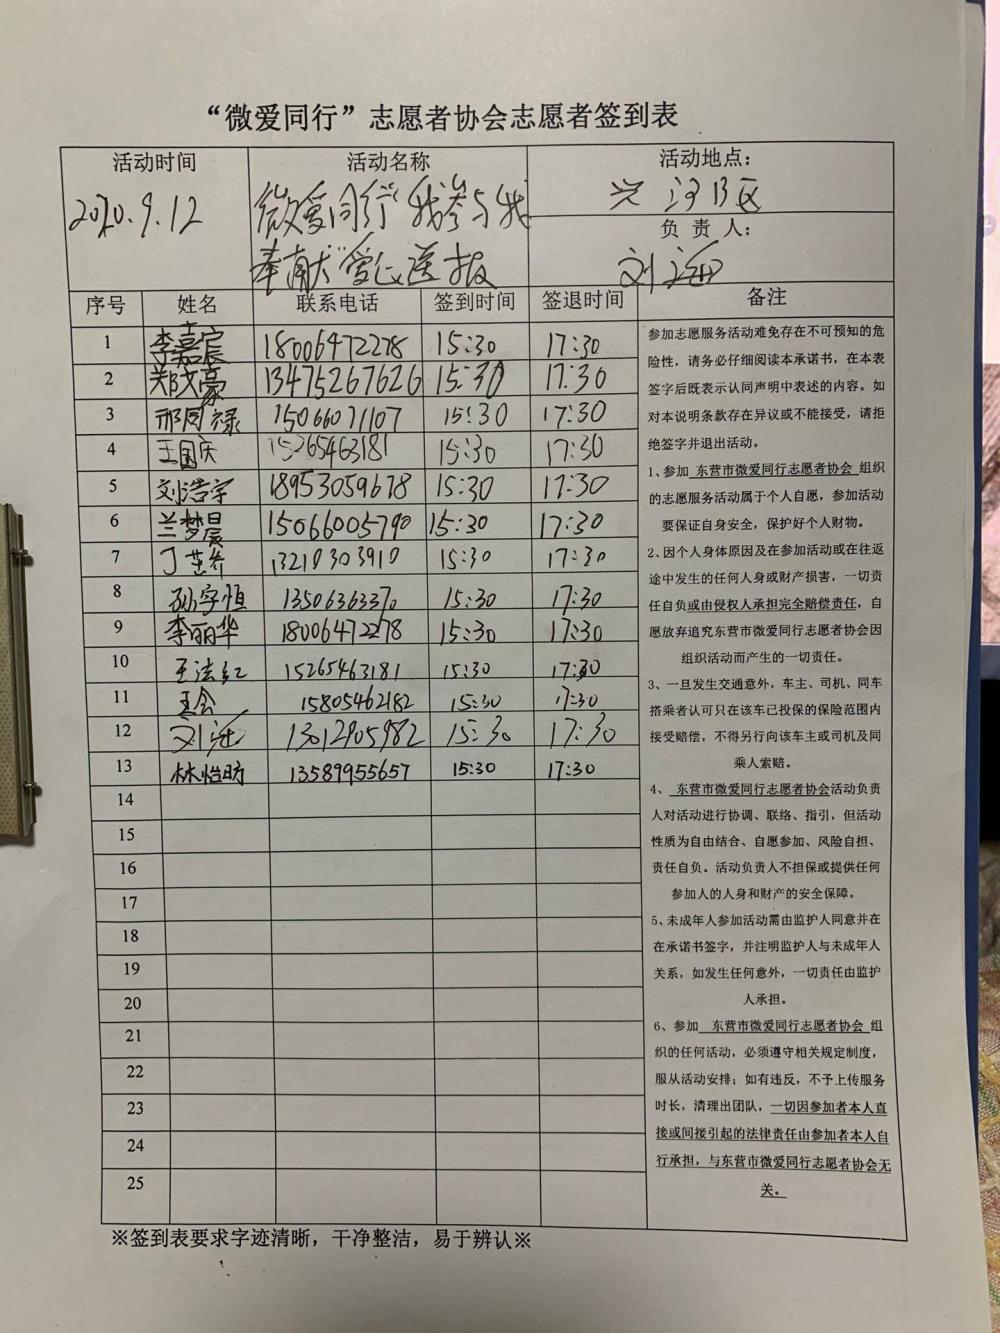 “微爱同行”志愿者协会志愿者签到表
活动时间 活动名称 活动地点：
2020.9.12 微爱同行“我参与我 兴河小区
奉献”爱心送报 负责人：
刘
序号 姓名 联系电话 签到时间 签退时间 备注
1 李嘉宸 18006472278 15:30 17:30
2 郑文豪 13475267626 15:30 17:30
3 邢同禄 15066071107 15:30 17:30
4 王国庆 15265463181 15:30 17:30
5 刘浩宇 18953059678 15:30 17:30
6 兰梦晨 15066005790 15:30 17:30
7 丁芷 13210303910 15:30 17:30
8 孙宇恒 13506363370 15:30 17:30
9 李丽华 18006472278 15:30 17:30
10 王法红 15265463181 15:30 17:30
11 王会 15805462182 15:30 17:30
12 刘 13012905982 15:30 17:30
13 林怡昉 13589955657 15:30 17:30
14
15
16
17
18
19
20
21
22
23
24
25
参加志愿服务活动难免存在不可预知的危
险性，请务必仔细阅读本承诺书，在本表
签字后既表示认同声明中表述的内容。如
对本说明条款存在异议或不能接受，请拒
绝签字并退出活动。
1、参加 东营市微爱同行志愿者协会 组织
的志愿服务活动属于个人自愿，参加活动
要保证自身安全，保护好个人财物。
2、因个人身体原因及在参加活动或在往返
途中发生的任何人身或财产损害，一切责
任自负或由侵权人承担完全赔偿责任，自
愿放弃追究东营市微爱同行志愿者协会因
组织活动而产生的一切责任。
3、一旦发生交通意外，车主、司机、同车
搭乘者认可只在该车已投保的保险范围内
接受赔偿，不得另行向该车主或司机及同
乘人索赔。
4、 东营市微爱同行志愿者协会活动负责
人对活动进行协调、联络、指引，但活动
性质为自由结合、自愿参加、风险自担、
责任自负。活动负责人不担保或提供任何
参加人的人身和财产的安全保障。
5、未成年人参加活动需由监护人同意并在
在承诺书签字，并注明监护人与未成年人
关系，如发生任何意外，一切责任由监护
人承担。
6、参加 东营市微爱同行志愿者协会 组
织的任何活动，必须遵守相关规定制度，
服从活动安排；如有违反，不予上传服务
时长，清理出团队，一切因参加者本人直
接或间接引起的法律责任由参加者本人自
行承担，与东营市微爱同行志愿者协会无
关。
※签到表要求字迹清晰，干净整洁，易于辨认※